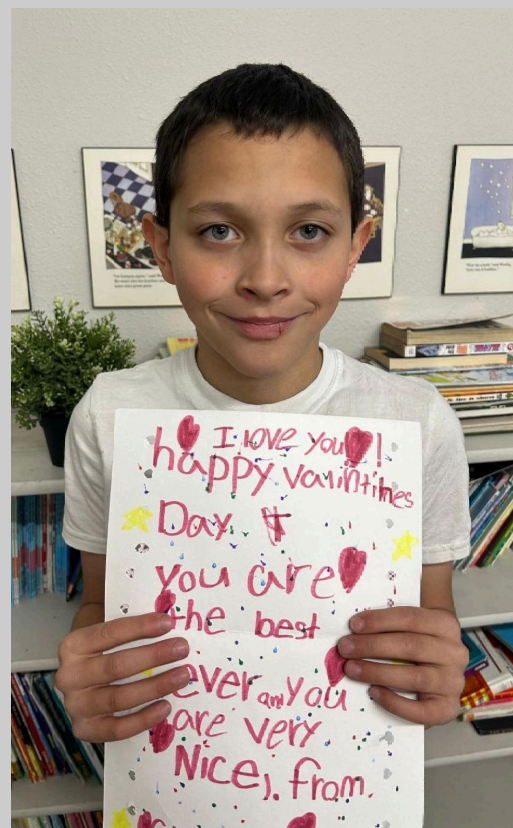 I love you!
happy valintines
Day
you are
the best
ever and you
are very
Nice). from.